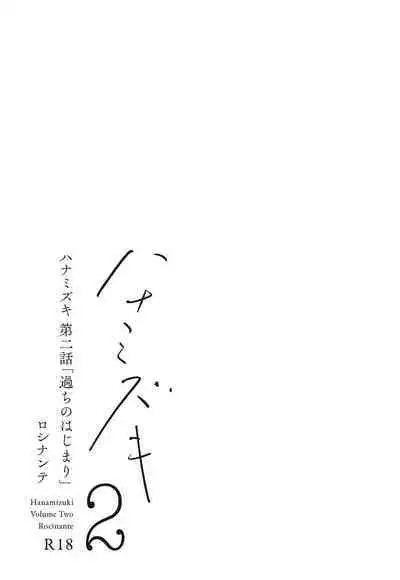 ハナミズキ
2
ハナミズキ 第二話「過ちのはじまり」
ロシナンテ
Hanamizuki
Volume Two
Rocinante
R18